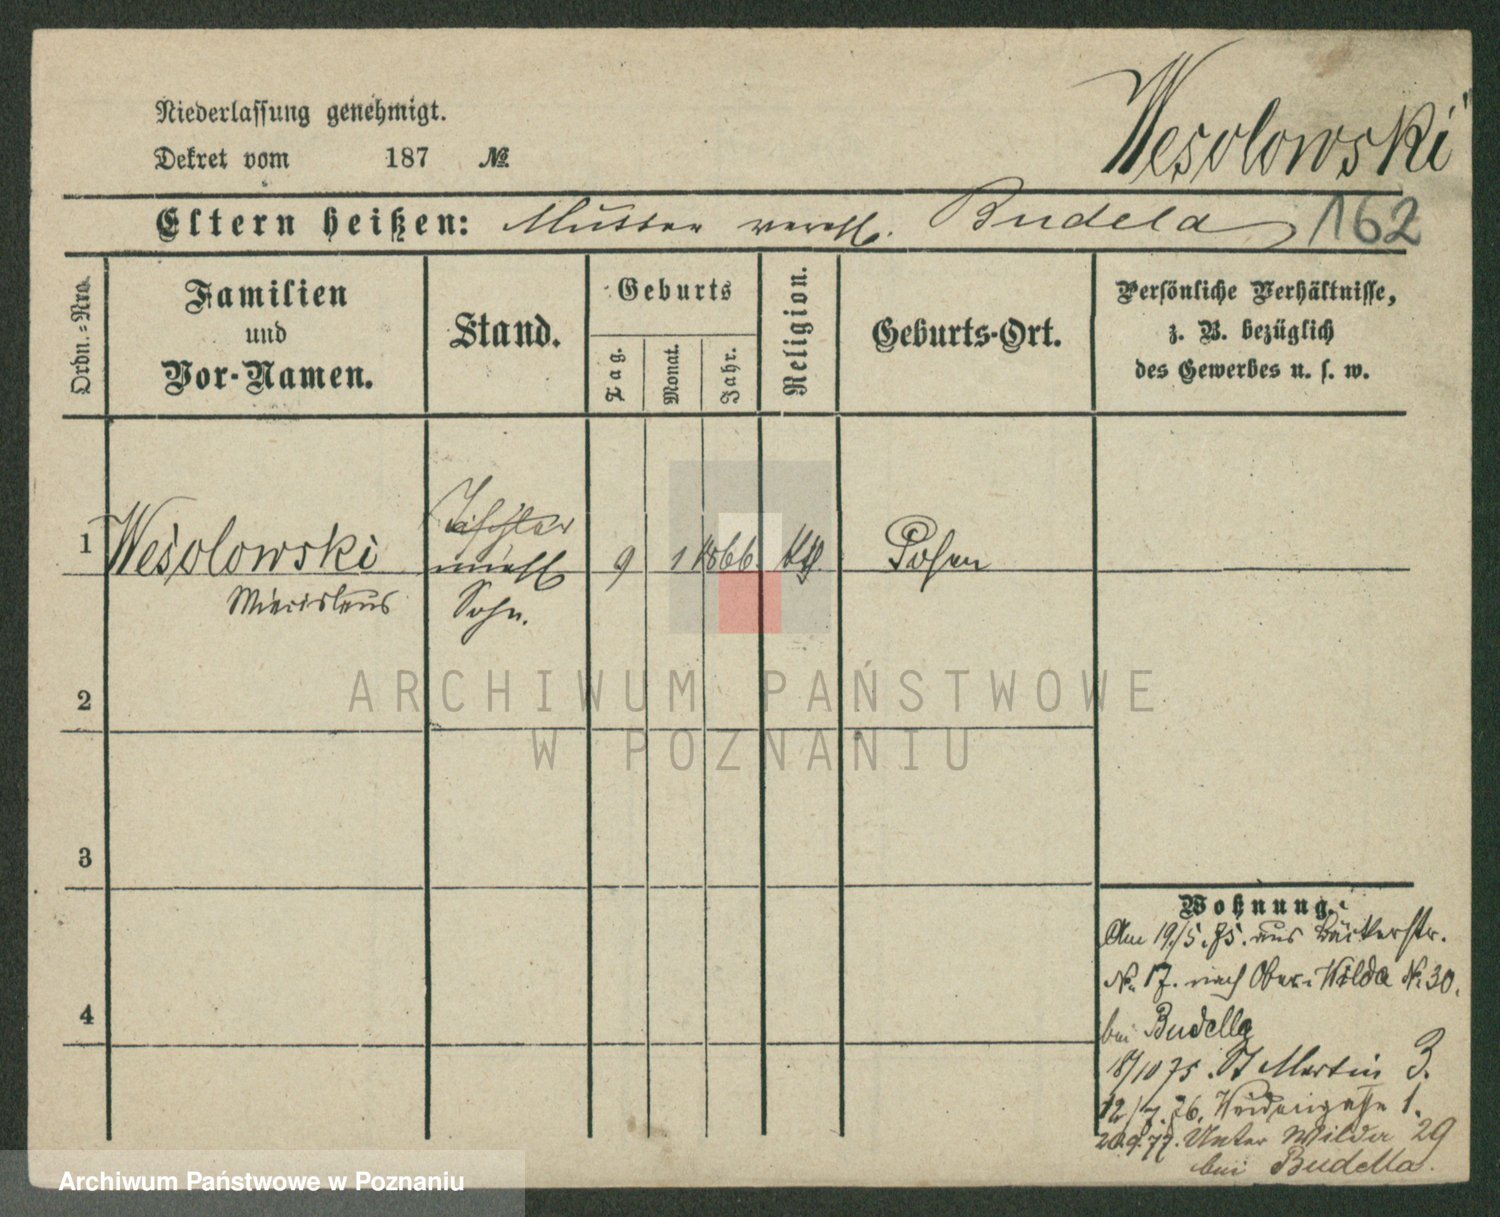 Niederlassung genehmigt.
Dekret vom 187 №
Wesolowski
Eltern heißen: Mutter verehl. Budela
162
Ordn.-Nro.
Familien
und
Vor-Namen.
Stand.
Geburts
Tag.
Monat.
Jahr.
Religion.
Geburts-Ort.
Persönliche Verhältnisse,
z. B. bezüglich
des Gewerbes u. s. w.
1 Wesolowski
Miecislaus
Tischler
unehl
Sohn.
9 1 1866.
Posen
2
3
4
Wohnung.
Am 19/5.75. aus Bäckerstr.
No. 17. nach Ober-Wilda No 30.
bei Budella
18/10 75. St Martin 3.
12/7. 76. Weidengasse 1.
20.9.77. Unter Wilda 29
bei Budella.
ARCHIWUM PAŃSTWOWE
W POZNANIU
Archiwum Państwowe w Poznaniu